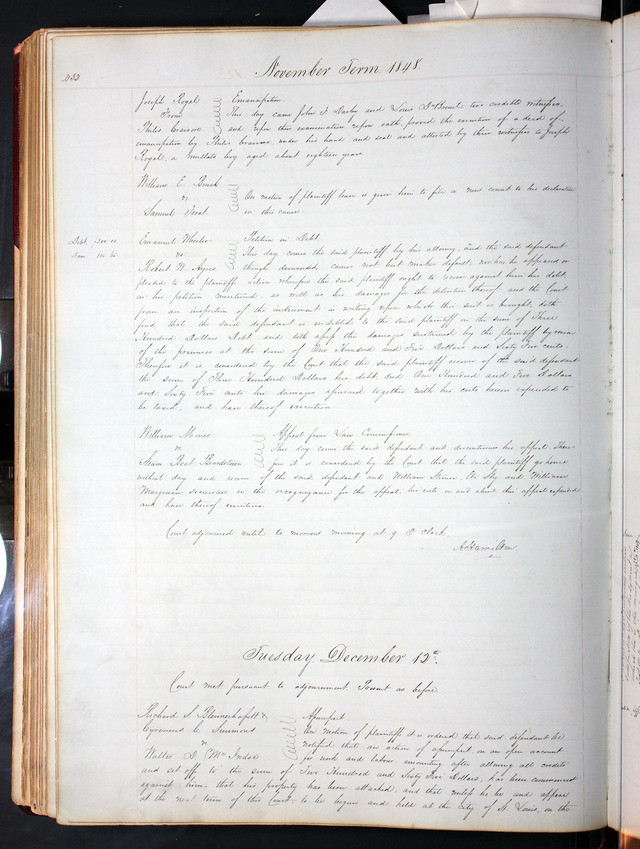 November Term 1848
Joseph Royal
From
Emancipation.
This day came John F. Darby and Louis D. two credible witnesses,
and upon their examination upon oath, proved the execution of a deed of
emancipation by under his hand and seal and attested by three witnesses to Joseph
Royal, a mulatto boy aged about eighteen years
William E.
vs
Samuel
On motion of plaintiff leave is given him to file a new count to his declaration
in this cause
Debt $300.00
105.65
Emanuel Wheeler
vs
Robert W. Ayres
Petition in Debt
This day comes the said plaintiff by his attorney, and the said defendant
though demanded, came not but makes default, nor has he appeared or
pleaded to the plaintiffs action wherefore the said plaintiff ought to recover against him his debt,
in his petition mentioned, as well as his damages for the detention thereof and the Court
from an inspection of the instrument in writing upon which this suit is brought, doth
find that the said defendant is indebted to the said plaintiff in the sum of Three
Hundred Dollars Debt, and doth assess the damages sustained by the plaintiff by reason
of the premises at the sum of One Hundred and Five Dollars and Sixty Five cents.
Therefore it is considered by the Court that the said plaintiff recover of the said defendant
the sum of Three Hundred Dollars his debt and One Hundred and Five Dollars
and Sixty Five cents his damages aforesaid together with his costs herein expended to
be taxed, and have thereof execution
William
vs
Steam Boat
Appeal from Law Commissioner
This day came the said defendant and discontinues his appeal. There-
fore it is considered by the Court that the said plaintiff go hence
without day and recover of the said defendant and William and William
securities in the recognizance for the appeal his costs in and about this appeal expended
and have thereof execution.
Court adjourned until to morrow morning at 9 O'clock.
A Hamilton
Tuesday, December 12th.
Court met pursuant to adjournment. Present as before
Richard S. Blennerhassett &
C. Simmons
vs
Walter D.
Assumpsit
On motion of plaintiffs it is ordered that said defendant be
notified that an action of assumpsit on an open account
for work and labour, amounting after allowing all credits
and set offs to the sum of Two Hundred and Sixty Five Dollars, has been commenced
against him that his property has been attached, and that unless he be and appear
at the next term of this Court to be begun and held at the City of St. Louis, on the